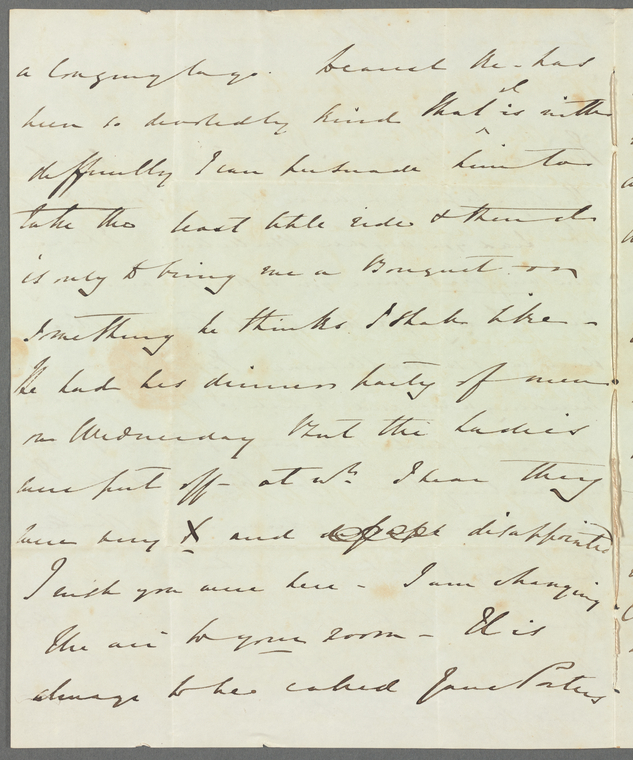 a longing lay. Dearest He - has
been so devotedly kind that it is with
difficulty I can persuade him to
take the least little ride & then it
is only to bring me a Bouquet or
something he thinks I shall like -
He had his dinner party of men
on Wednesday But the Ladies
were put off - at wh. I hear they
were very X and disappointed
I wish you were here - I am changing
the air to your room - It is
always to be called Jane Porters